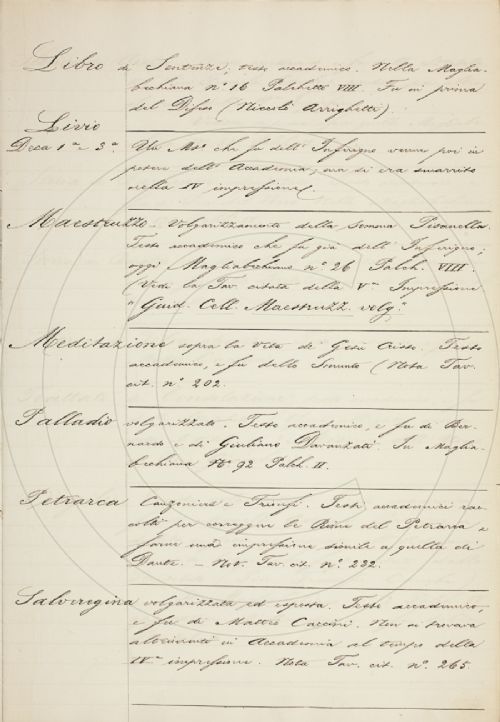 Libro di Sentenze, testo accademico. Nella Maglia-
bechiana n° 16 Palchetto VIII. Fu in prima
del Difeso (Niccolò Arrighetti).
Livio
Deca 1ª - 3ª Un Ms. che fu dell' Inferigno venne poi in
potere dell' Accademia; ma si era smarrito
nella IV impressione.
Maestruzzo - Volgarizzamento della Somma Pisanella.
Testo accademico che fu già dell' Inferigno;
oggi Magliabechiano n° 26 Palch. VIII.
(Vedi la Tav. citata della Vª Impressione
" Guid. Cell. Maestruzz. volg."
Meditazione sopra la Vita di Gesù Cristo. Testo
accademico, e fu dello (Nota Tav.
cit. n° 202.
Palladio volgarizzato. Testo accademico, e fu di Ber-
nardo e di Giuliano Davanzati. In Maglia-
bechiana N° 92 Palch. II.
Petrarca Canzoniere e Trionfi. Testi accademici rac-
colti per correggere le Rime del Petrarca e
farne una impressione simile a quella di
Dante. - Not. Tav. cit. n° 232.
Salveregina volgarizzata ed esposta. Testo accademico,
e fu di Matteo Caccini. Non si trovava
altrimenti in Accademia al tempo della
IVª impressione. Nota Tav. cit. n°. 265.